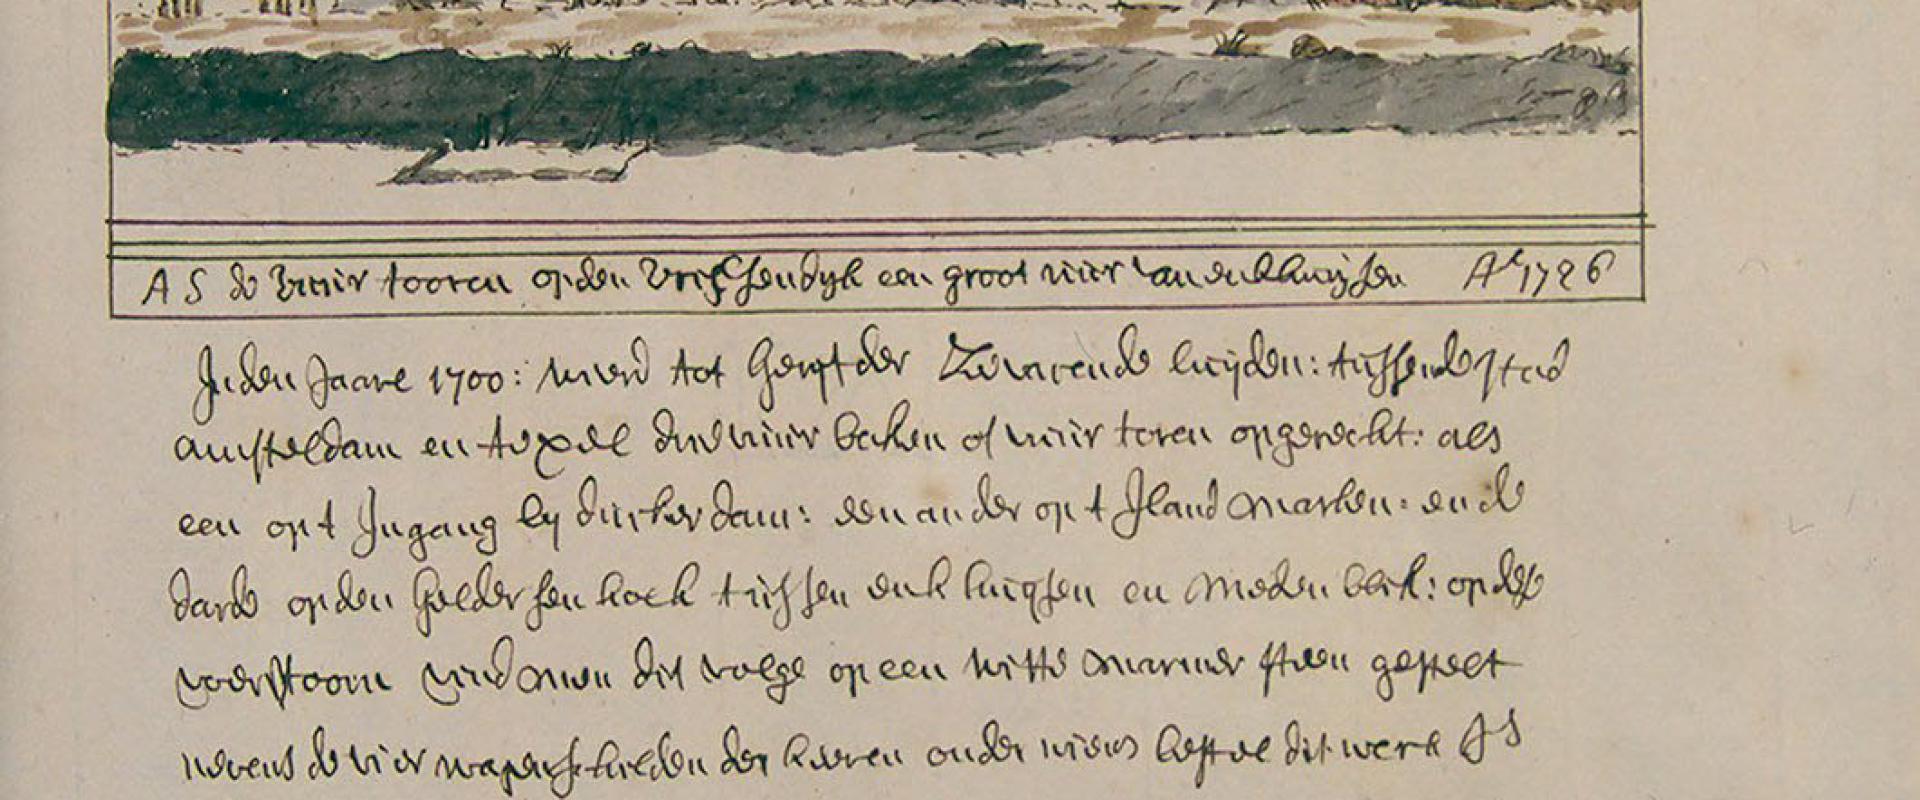 A S de Vuur tooren op den Vriessendyk een groot uur van enkhuijsen Ao 1726
Inden Jaare 1700: wierd tot Gerijf der Zevarende luijden: tussende stad
amsteldam en texcel drie vuur baken of vuur toren opgerecht: als
een op t Ingang by durkerdam: een ander op t Iland Marken: en de
darde op den Geldersen hoek tussen enkhuijsen en Medenblik: op dese
voerstoorn vind men dit volge op een witte marmer steen gestelt
nevens de vier wapenschilden der heeren onder wiens bestel dit werk IS